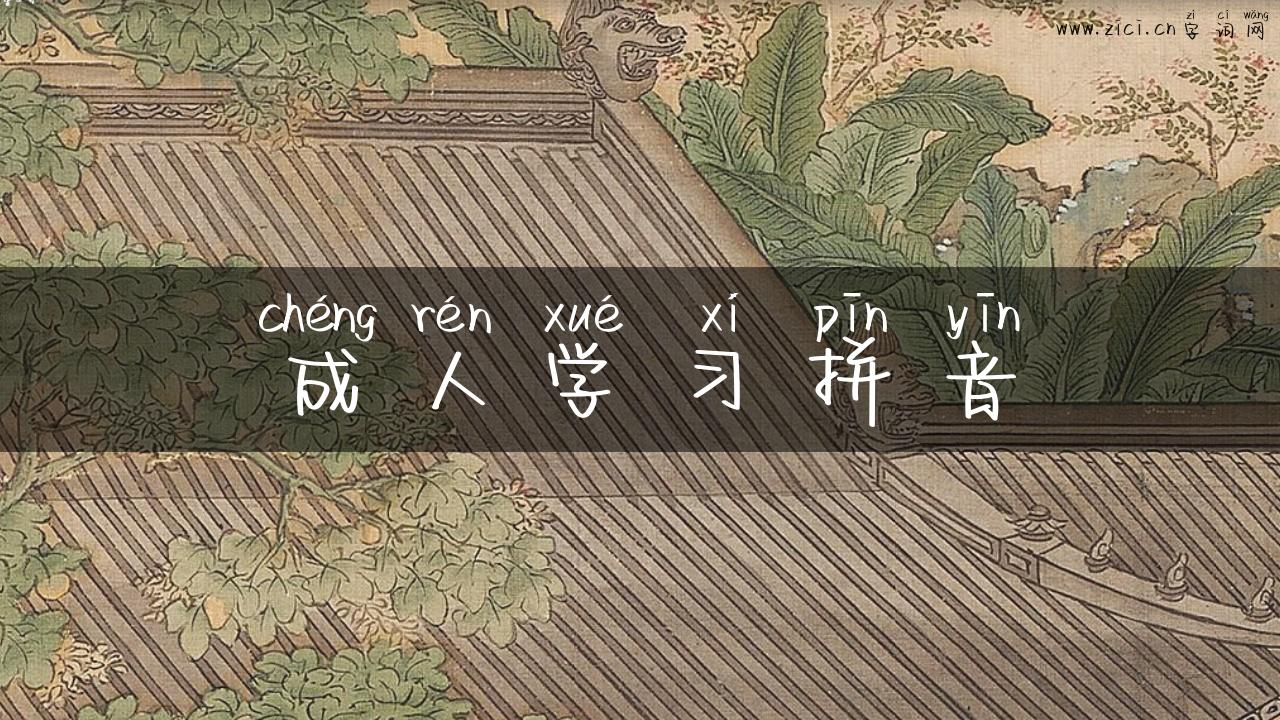 zì cí wǎng
www.zici.cn 字词网
chéng rén xué xí pīn yīn
成人学习拼音